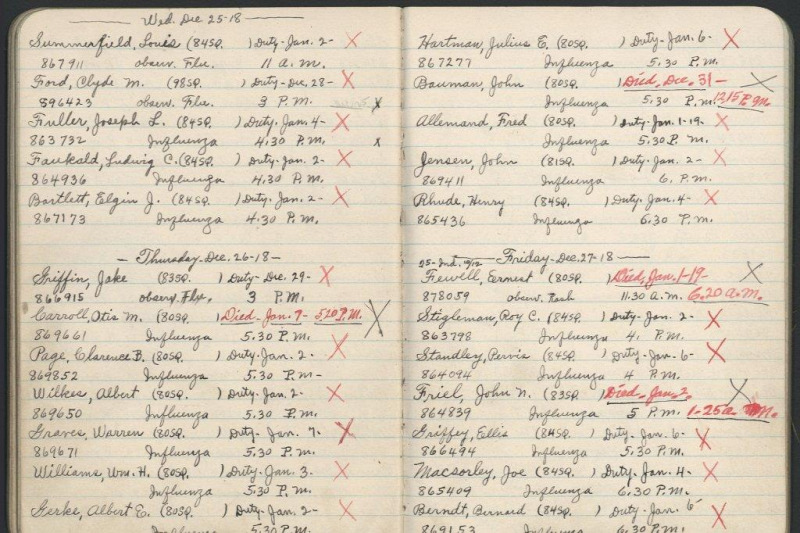 Wed. Dec 25-18-
Summerfield, Louis (84SQ. ) Duty-Jan. 2- X
867911 observ. Flu. 11 A.M.
Ford, Clyde M. (98SQ. ) Duty-Dec. 28- X
896423 observ. Flu. 3 P.M. x
Fuller, Joseph L. (84SQ. ) Duty-Jan. 4- X
863732 Influenza 4.30 P.M. x
Faukald, Ludwig C. (84SQ. ) Duty-Jan. 2- X
864936 Influenza 4.30 P.M.
Bartlett, Elgin J. (84SQ. ) Duty-Jan. 2- X
867173 Influenza 4.30 P.M.
- Thursday-Dec. 26-18-
Griffin, Jake (83SQ. ) Duty-Dec. 29- X
866915 observ. Flu. 3 P.M.
Carroll, Otis M. (80SQ. ) Died-Jan. 7- 5.20 P.M. X
869661 Influenza 5.30 P.M.
Page, Clarence B. (80SQ. ) Duty-Jan. 2- X
869852 Influenza 5.30 P.M-
Wilkes, Albert (80SQ. ) Duty-Jan. 2- X
869650 Influenza 5.30 P.M.
Graves, Warren (80SQ. ) Duty-Jan. 7. X
869671 Influenza 5.30 P.M.
Williams, Wm. H. (80SQ. ) Duty-Jan. 3. X
Influenza 5.30 P.M.
Gerke, Albert E. (80SQ. ) Duty-Jan. 2- X
Influenza 5.30 P.M.
Hartman, Julius E. (80SQ. ) Duty-Jan. 6- X
867277 Influenza 5.30 P.M.
Bauman, John (80SQ. ) Died, Dec. 31- X
Influenza 5.30 P.M. 12.15 P.M.
Allemand, Fred (80SQ. ) Duty-Jan. 1-19- X
Influenza 5.30 P.M.
Jensen, John (81SQ. ) Duty-Jan. 2- X
869411 Influenza 6. P.M.
Rhude, Henry (84SQ. ) Duty-Jan. 4- X
865436 Influenza 6.30 P.M.
- Friday-Dec. 27-18-
Fewell, Ernest (80SQ. ) Died, Jan. 1-19- X
878059 observ. Rash 11.30 A.M. 6.20 A.M.
Stigleman, Roy C. (84SQ. ) Duty-Jan. 2- X
863798 Influenza 4. P.M.
Standley, Pervis (84SQ. ) Duty-Jan. 6- X
864094 Influenza 4 P.M.
Friel, John N. (83SQ. ) Died-Jan. 2. X
864839 Influenza 5 P.M. 1-25 a.m.
Griffey, Ellis (84SQ. ) Duty-Jan. 6- X
866494 Influenza 5.30 P.M.
Macsorley, Joe (84SQ. ) Duty-Jan. 4- X
865409 Influenza 6.30 P.M.
Berndt, Bernard (84SQ. ) Duty-Jan. 6- X
869153 Influenza 6.30 P.M.